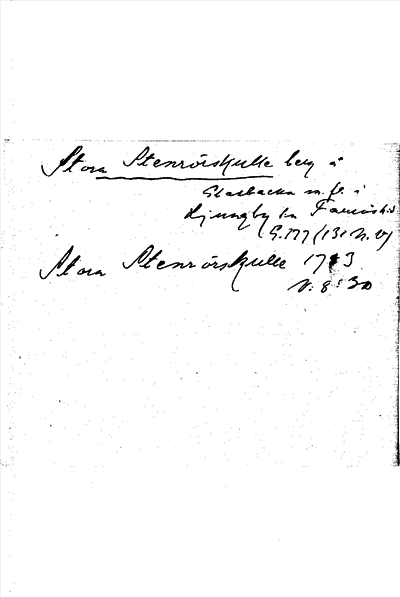 Stora Stenrörskulle berg å
Glasbacka m.fl. i
Ljungby sn Faurås hd
G.177 (131 N.V)
Stora Stenrörskulle 1713
N: 8: 30